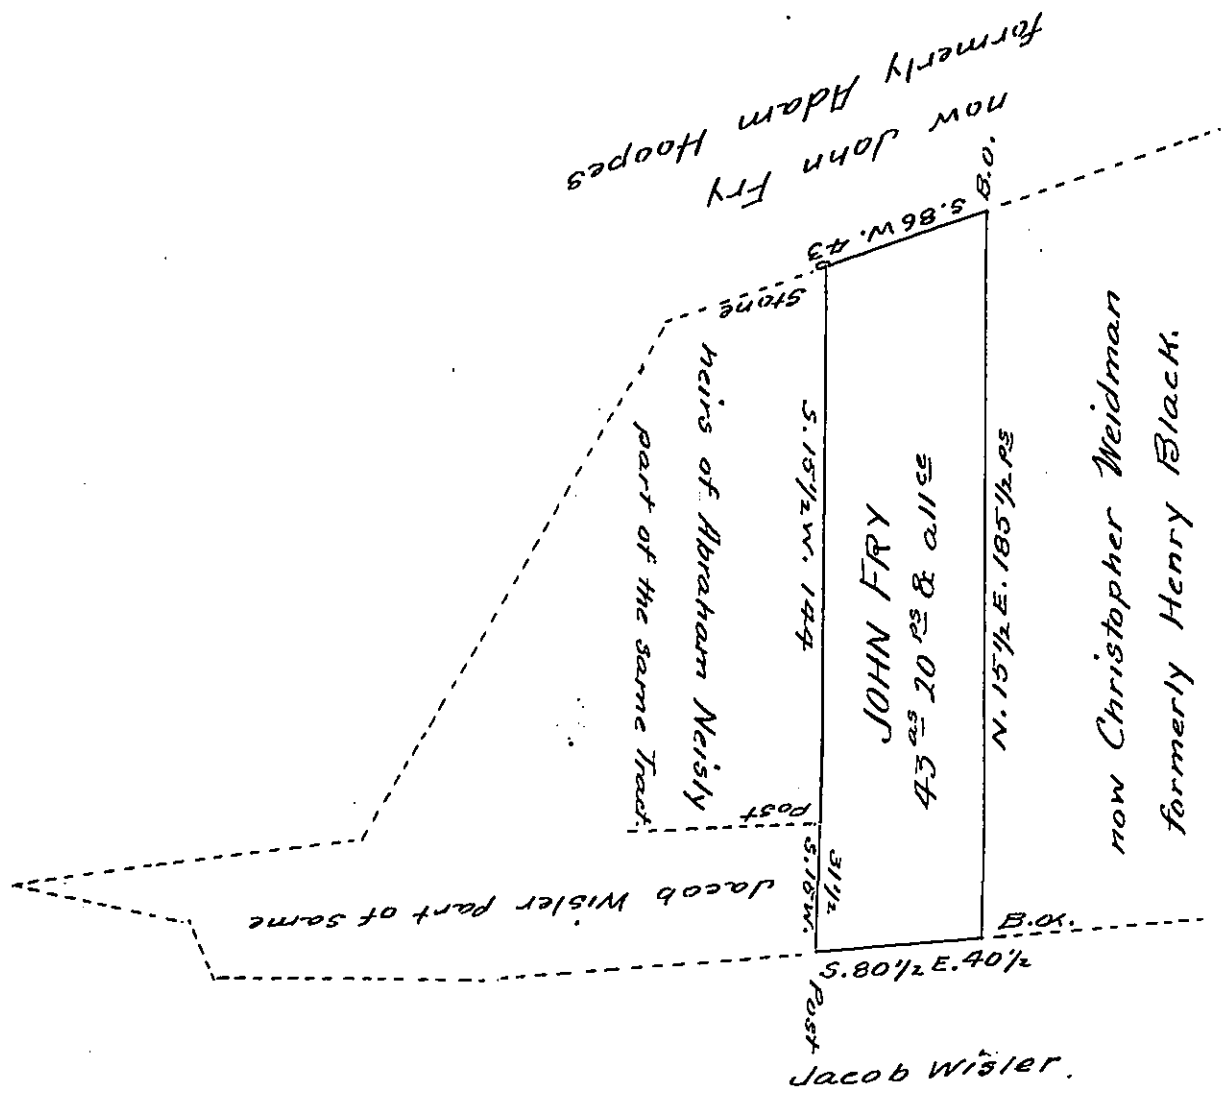 formerly Adam Hoopes
now John Fry
B.O.
S. 86 W. 43
Stone
heirs of Abraham Neisly
part of the same Tract.
S. 15 1/2 W. 144
JOHN FRY
43 as 20 ps & all ce
N. 15 1/2 E. 185 1/2 ps
now Christopher Weidman
formerly Henry Black.
Post
S. 15 W.
31 1/2
Jacob Wisler part of Same
B.O.
S. 80 1/2 E. 40 1/2
Post
Jacob Wisler.